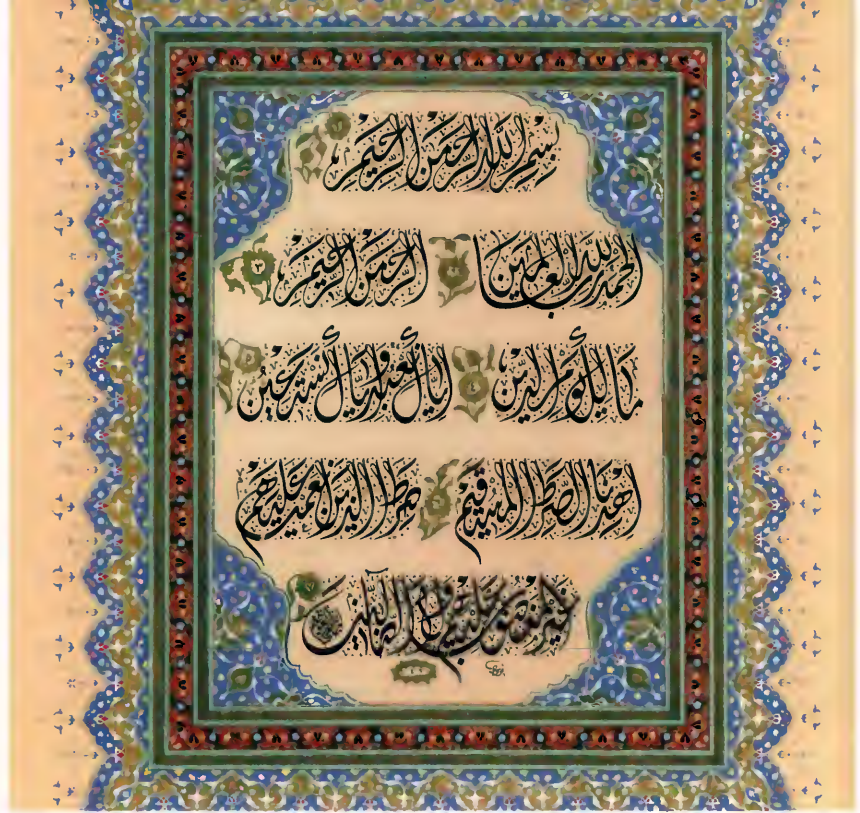 بِسْمِ اللَّهِ الرَّحْمَٰنِ الرَّحِيمِ
الْحَمْدُ لِلَّهِ رَبِّ الْعَالَمِينَ الرَّحْمَٰنِ الرَّحِيمِ ٣
مَالِكِ يَوْمِ الدِّينِ إِيَّاكَ نَعْبُدُ وَإِيَّاكَ نَسْتَعِينُ
اهْدِنَا الصِّرَاطَ الْمُسْتَقِيمَ صِرَاطَ الَّذِينَ أَنْعَمْتَ عَلَيْهِمْ
غَيْرِ الْمَغْضُوبِ عَلَيْهِمْ وَلَا الضَّالِّينَ